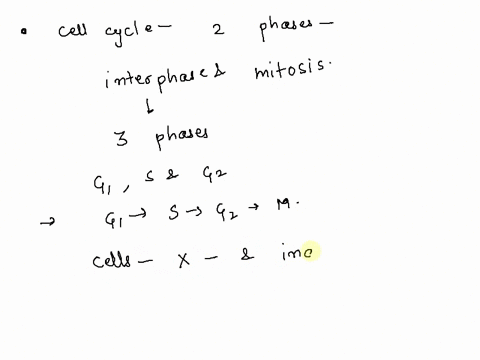 • cell cycle - 2 phases -
interphase & mitosis.
↓
3 phases
G1, S & G2
→ G1 → S → G2 → M.
cells - X - & inc